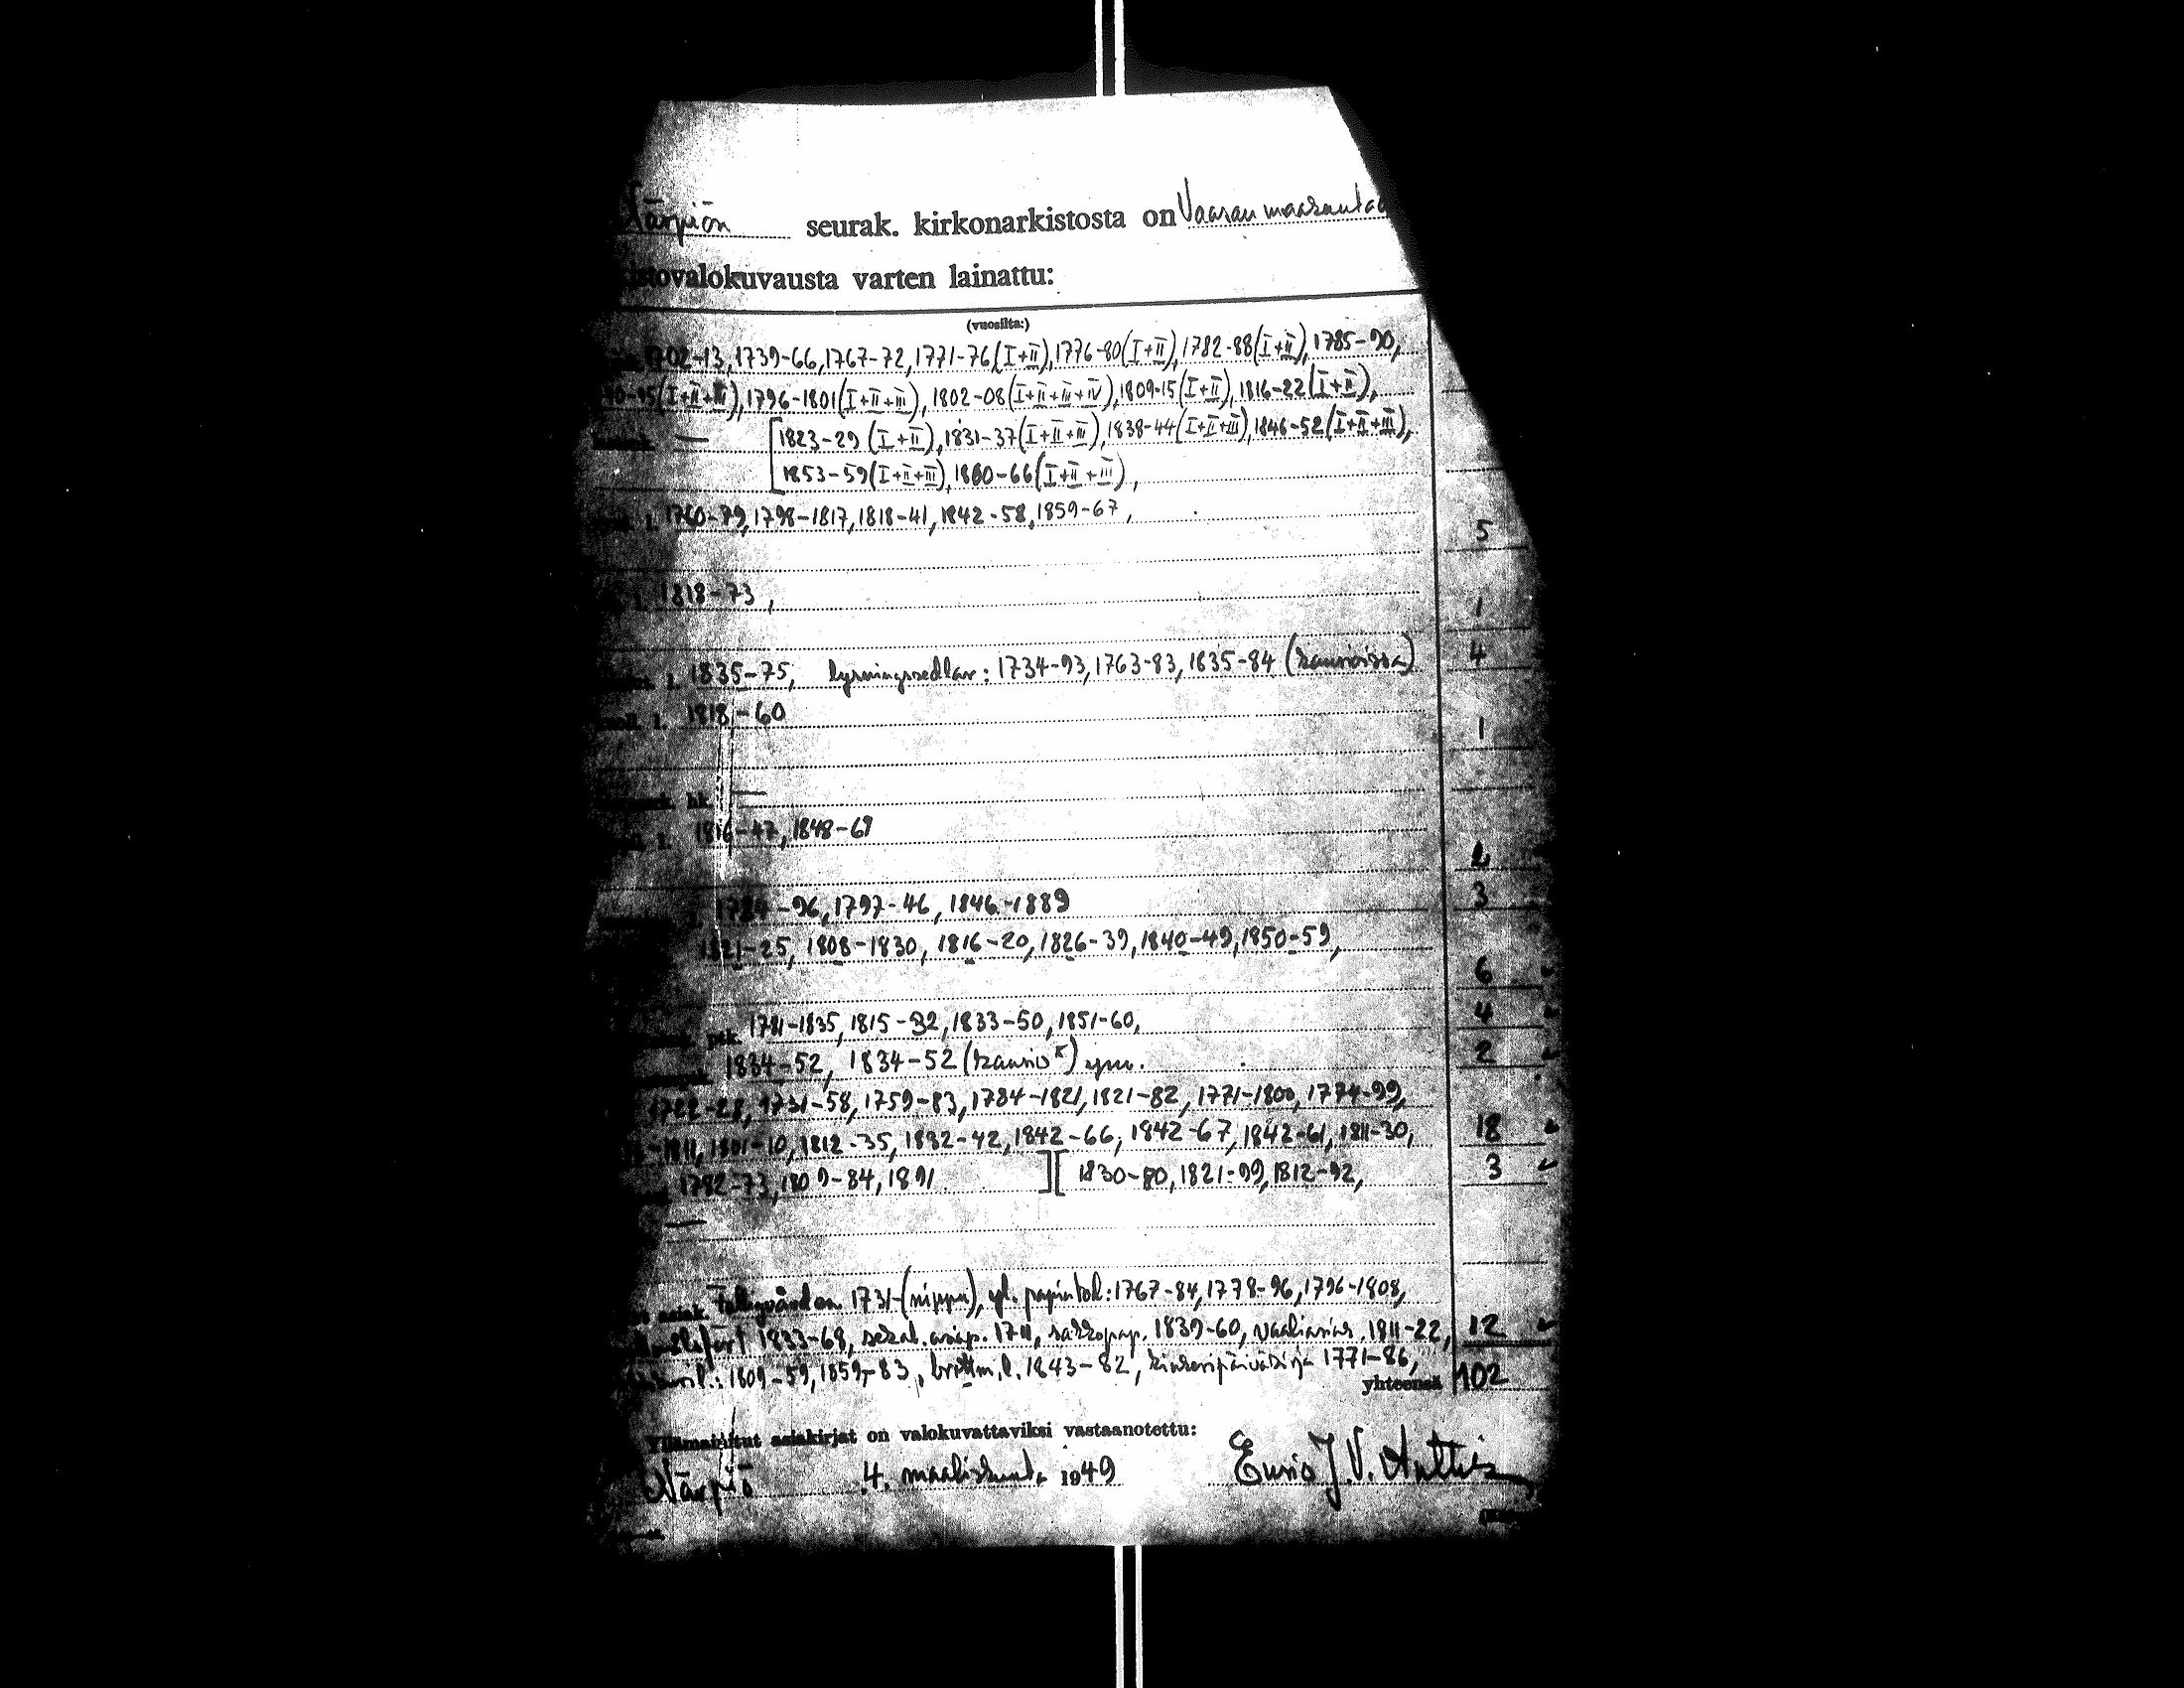 Närpiön seurak. kirkonarkistosta on Vaasan maakunta
valokuvausta varten lainattu:
(vuosilta:)
1702-13, 1739-66, 1767-72, 1771-76 (I+II), 1776-80 (I+II), 1782-88 (I+II), 1785-90,
90-95 (I+II+III), 1796-1801 (I+II+III), 1802-08 (I+II+III+IV), 1809-15 (I+II), 1816-22 (I+II),
— [1823-29 (I+II), 1831-37 (I+II+III), 1838-44 (I+II+III), 1846-52 (I+II+III),
1853-59 (I+II+III), 1860-66 (I+II+III),
l. 1760-79, 1798-1817, 1818-41, 1842-58, 1859-67, 5
l. 1818-73, 1
l. 1835-75, lysningssedlar: 1734-93, 1763-83, 1835-84 (kansioissa) 4
l. 1818-60 1
hk. —
l. 1816-47, 1848-69 2
1784-96, 1797-46, 1846-1889 3
1821-25, 1808-1830, 1816-20, 1826-39, 1840-49, 1850-59, 6
ptk. 1781-1835, 1815-32, 1833-50, 1851-60, 4
1834-52, 1834-52 (kansio) 2
1722-28, 1731-58, 1759-83, 1784-1821, 1821-82, 1771-1800, 1774-99,
-1811, 1801-10, 1812-35, 1832-42, 1842-66, 1842-67, 1842-61, 1811-30, 18
1782-73, 1809-84, 1891 ][ 1830-80, 1821-99, 1812-92, 3
—
asiak. fattigvården 1731- (nippu), 1767-84, 1778-96, 1796-1808,
1833-68, sekal. asiap. 1711, 1839-60, 1811-22, 12
1809-59, 1859-83, 1843-82, kinkeripäiväkirja 1771-86,
yhteensä 102
Yllämainitut asiakirjat on valokuvattaviksi vastaanotettu:
Närpiö 4. maaliskuuta 1949